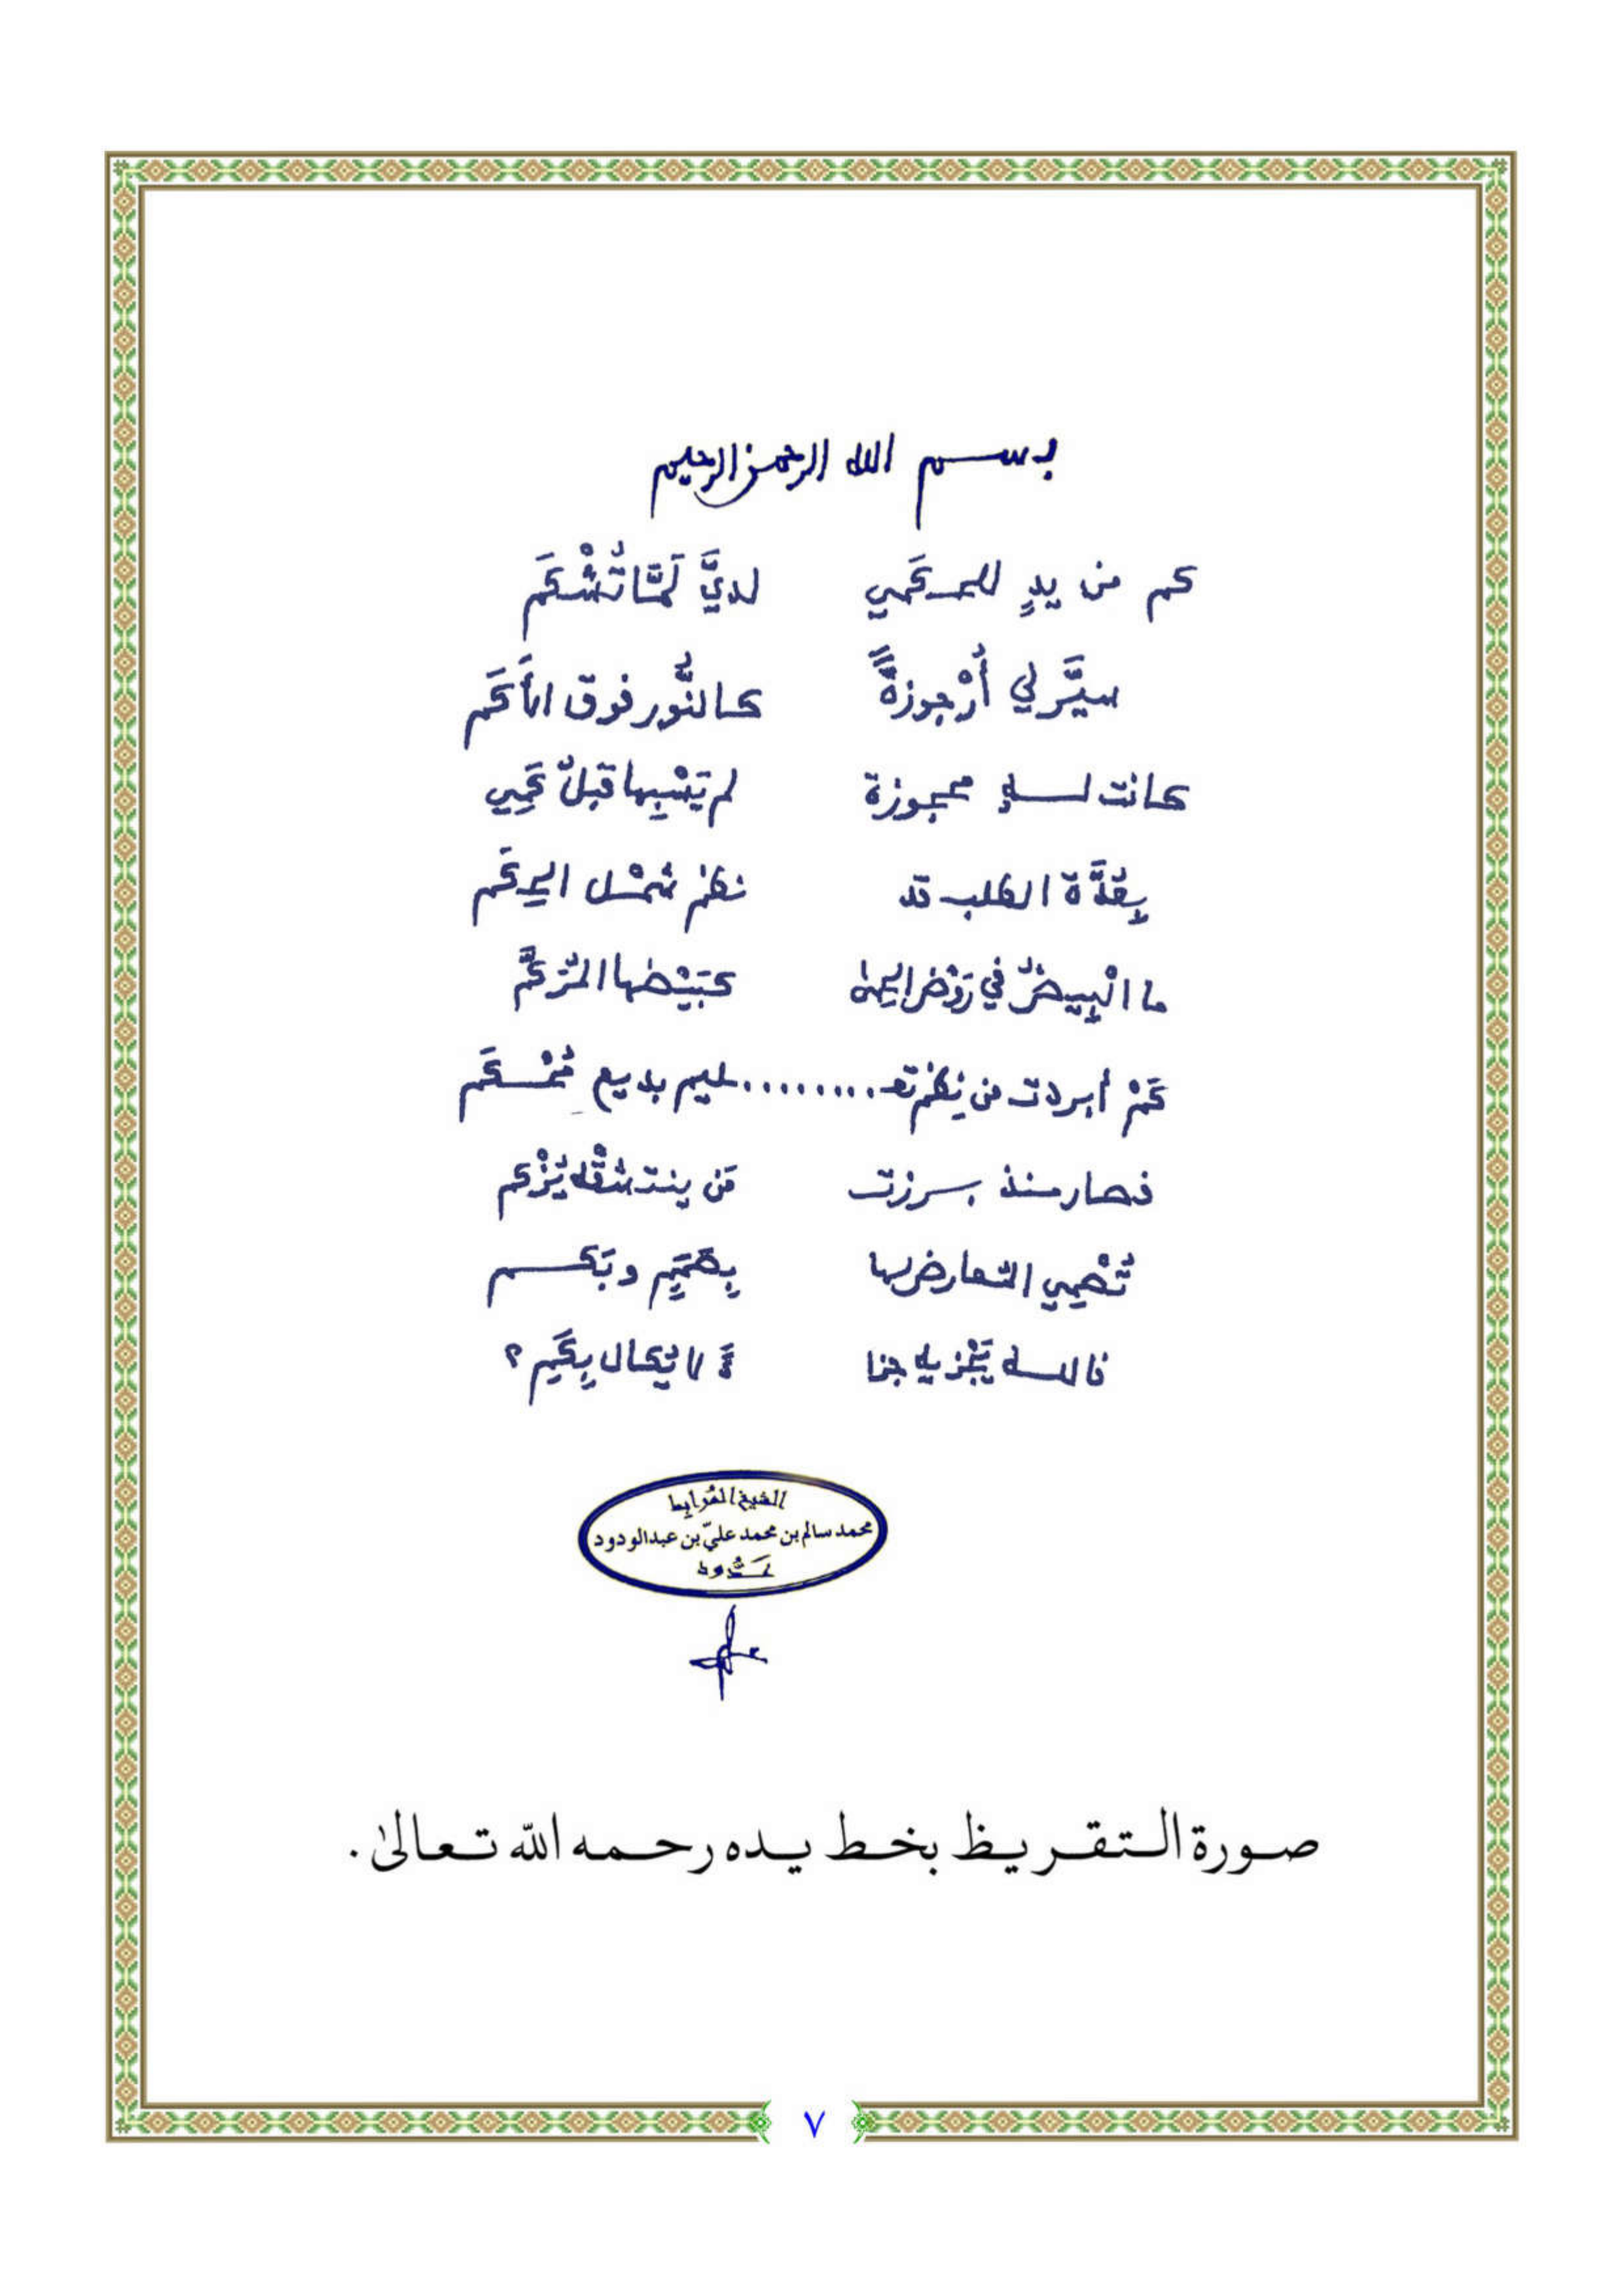 بسم الله الرحمن الرحيم
كم من يدٍ للحكَمي لديَّ لَمَّا تُشْكَم
سيَّر لي أُرْجوزةً كالنُّور فوق الأَكَم
كانت له محجوزة لم يَسْبِها قبلُ كَمِي
بِقُذَّة الطلب قد نظم شمْل اليرَكَم
ما الْبِيضُ في رَوْض كبَيْضها المُرَكَّم
كَمْ أبردت من نِظم تعـ........ـليم بديع مُحْكَم
فصار منذ برزت مَن ينتشقْه يُزْكم
تُصْمِي المعارض لها بِصَمَمٍ وبَكم
فالله يَجْزيه جزا ءً لا يُكال بِكَمِ؟
الشيخ المُرابِط
محمد سالم بن محمد عليّ بن عبدالودود
عَدُّود
صورة التقريظ بخط يده رحمه الله تعالىٰ.
٧